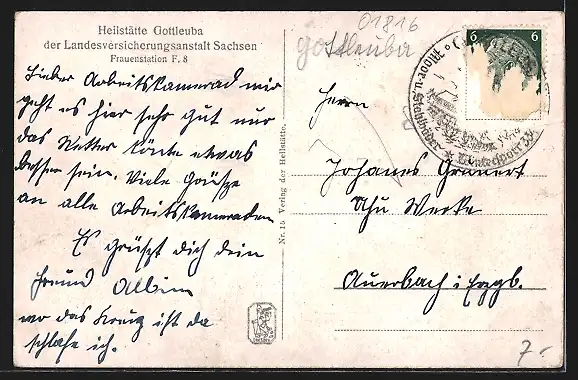 Heilstätte Gottleuba
der Landesversicherungsanstalt Sachsen
Frauenstation F. 8
01816
Gottleuba
6 6
Lieber Arbeitskamerad mir
geht es hier sehr gut nur
das Wetter könte etwas
besser sein. Viele Grüsze
an alle Arbeitskameraden
Es grüszt dich dein
freund Albin
wo das Kreuz ist da
schlafe ich.
Nr. 15 Verlag der Heilstätte.
Herrn
Johanes
Werke
Auerbach i Erzgb.
Moor- u. Stahlbäder
7-